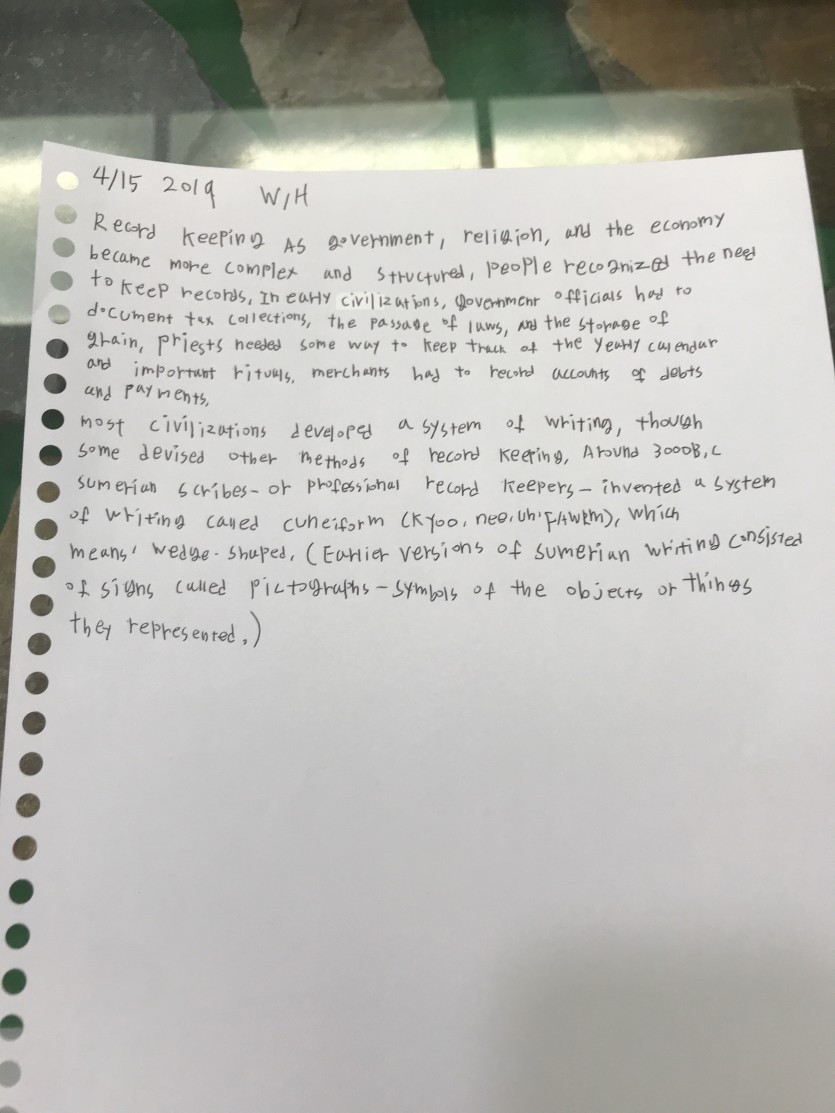 4/15 2019 W/H
Record keeping As government, religion, and the economy
became more complex and structured, people recognized the need
to keep records, In early civilizations, government officials had to
document tax collections, the passage of laws, and the storage of
grain, priests needed some way to keep track of the yearly calendar
and important rituals, merchants had to record accounts of debts
and payments,
most civilizations developed a system of writing, though
some devised other methods of record keeping, Around 3000B,C
sumerian scribes- or professional record keepers - invented a system
of writing called cuneiform (Kyoo, nee, uh, FAWRM), which
means' wedge-shaped, (Earlier versions of sumerian writing consisted
of signs called pictographs - symbols of the objects or things
they represented,)